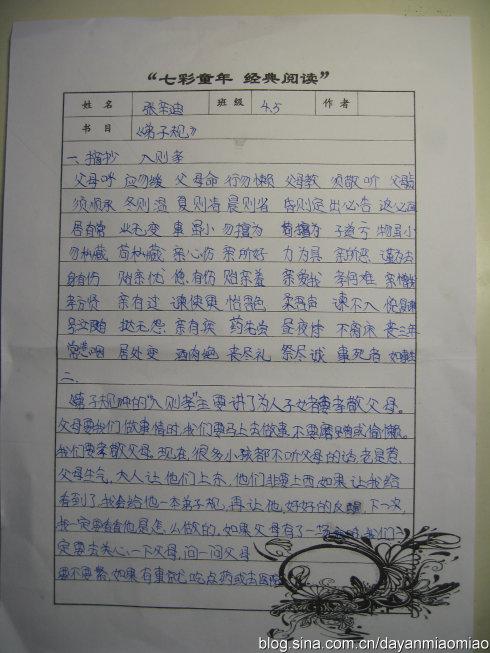 “七彩童年 经典阅读”
姓名 张辛迪 班级 4.5 作者
书目 《弟子规》
一、摘抄 入则孝
父母呼 应勿缓 父母命 行勿懒 父母教 须敬听 父母责
须顺承 冬则温 夏则凊 晨则省 昏则定 出必告 返必面
居有常 业无变 事虽小 勿擅为 苟擅为 子道亏 物虽小
勿私藏 苟私藏 亲心伤 亲所好 力为具 亲所恶 谨为去
身有伤 贻亲忧 德有伤 贻亲羞 亲爱我 孝何难 亲憎我
孝方贤 亲有过 谏使更 怡吾色 柔吾声 谏不入 悦复谏
号泣随 挞无怨 亲有疾 药先尝 昼夜侍 不离床 丧三年
常悲咽 居处变 酒肉绝 丧尽礼 祭尽诚 事死者 如事生
二、
弟子规中的“入则孝”主要讲了为人子女者要孝敬父母。
父母要我们做事情时,我们要马上去做,不要磨蹭或偷懒。
我们要孝敬父母。现在,很多小孩都不听父母的话,老是惹
父母生气,大人让他们上东,他们非要上西,如果让我给
看到了,我会给他一本弟子规,再让他好好的反醒,下一次,
我一定要看看他是怎么做的,如果父母有了一场 我们一
定要去关心一下父母,问一问父母
要不要紧,如果有事就吃点药或去医院
blog.sina.com.cn/dayanmiaomiao